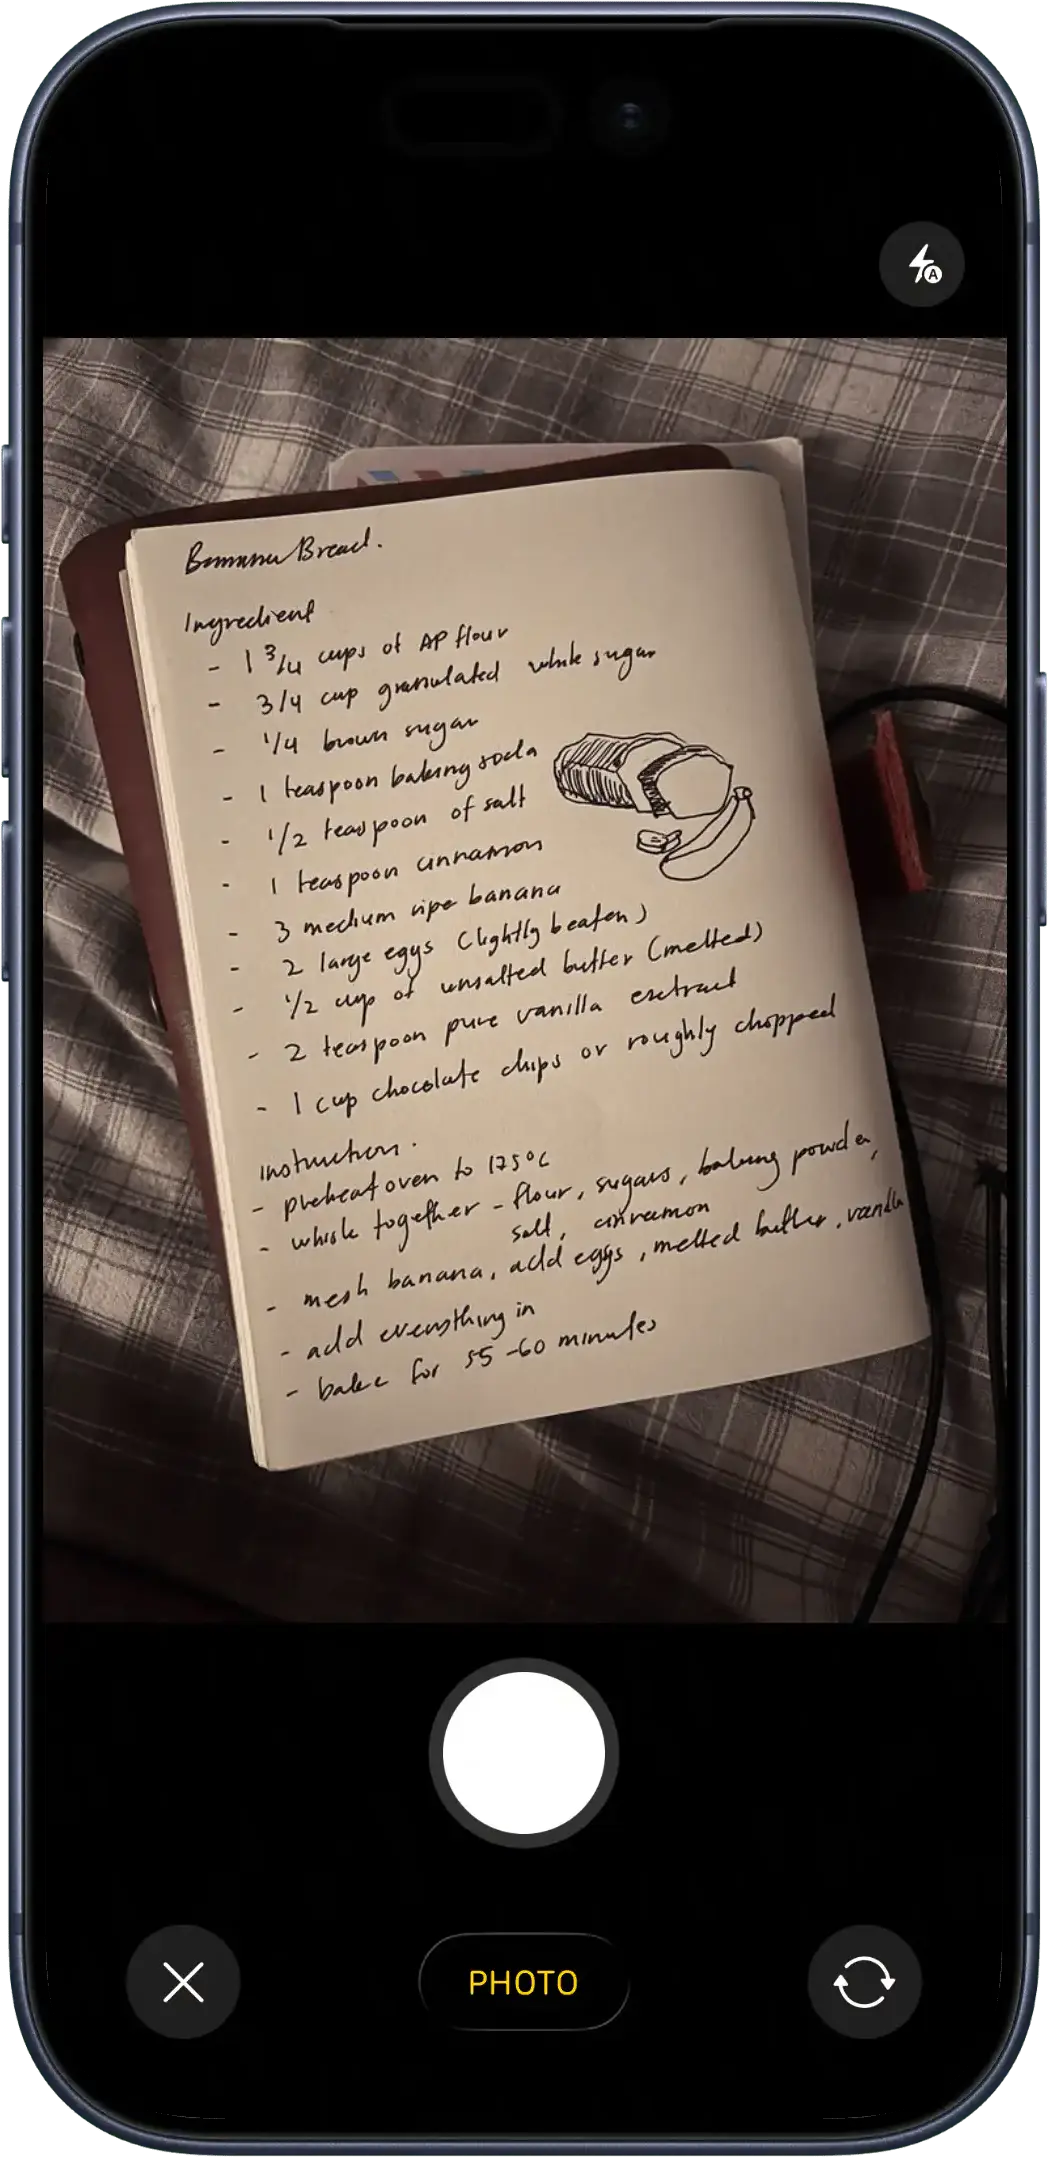 Banana Bread.
Ingredient
- 1 3/4 cups of AP flour
- 3/4 cup granulated white sugar
- 1/4 brown sugar
- 1 teaspoon baking soda
- 1/2 teaspoon of salt
- 1 teaspoon cinnamon
- 3 medium ripe banana
- 2 large eggs (lightly beaten)
- 1/2 cup of unsalted butter (melted)
- 2 teaspoon pure vanilla exctract
- 1 cup chocolate chips or roughly chopped
instruction.
- preheat oven to 175°C
- whisk together - flour, sugars, baking powder,
salt, cinnamon
- mesh banana, add eggs, melted butter, vanilla
- add everything in
- bake for 55-60 minutes
PHOTO